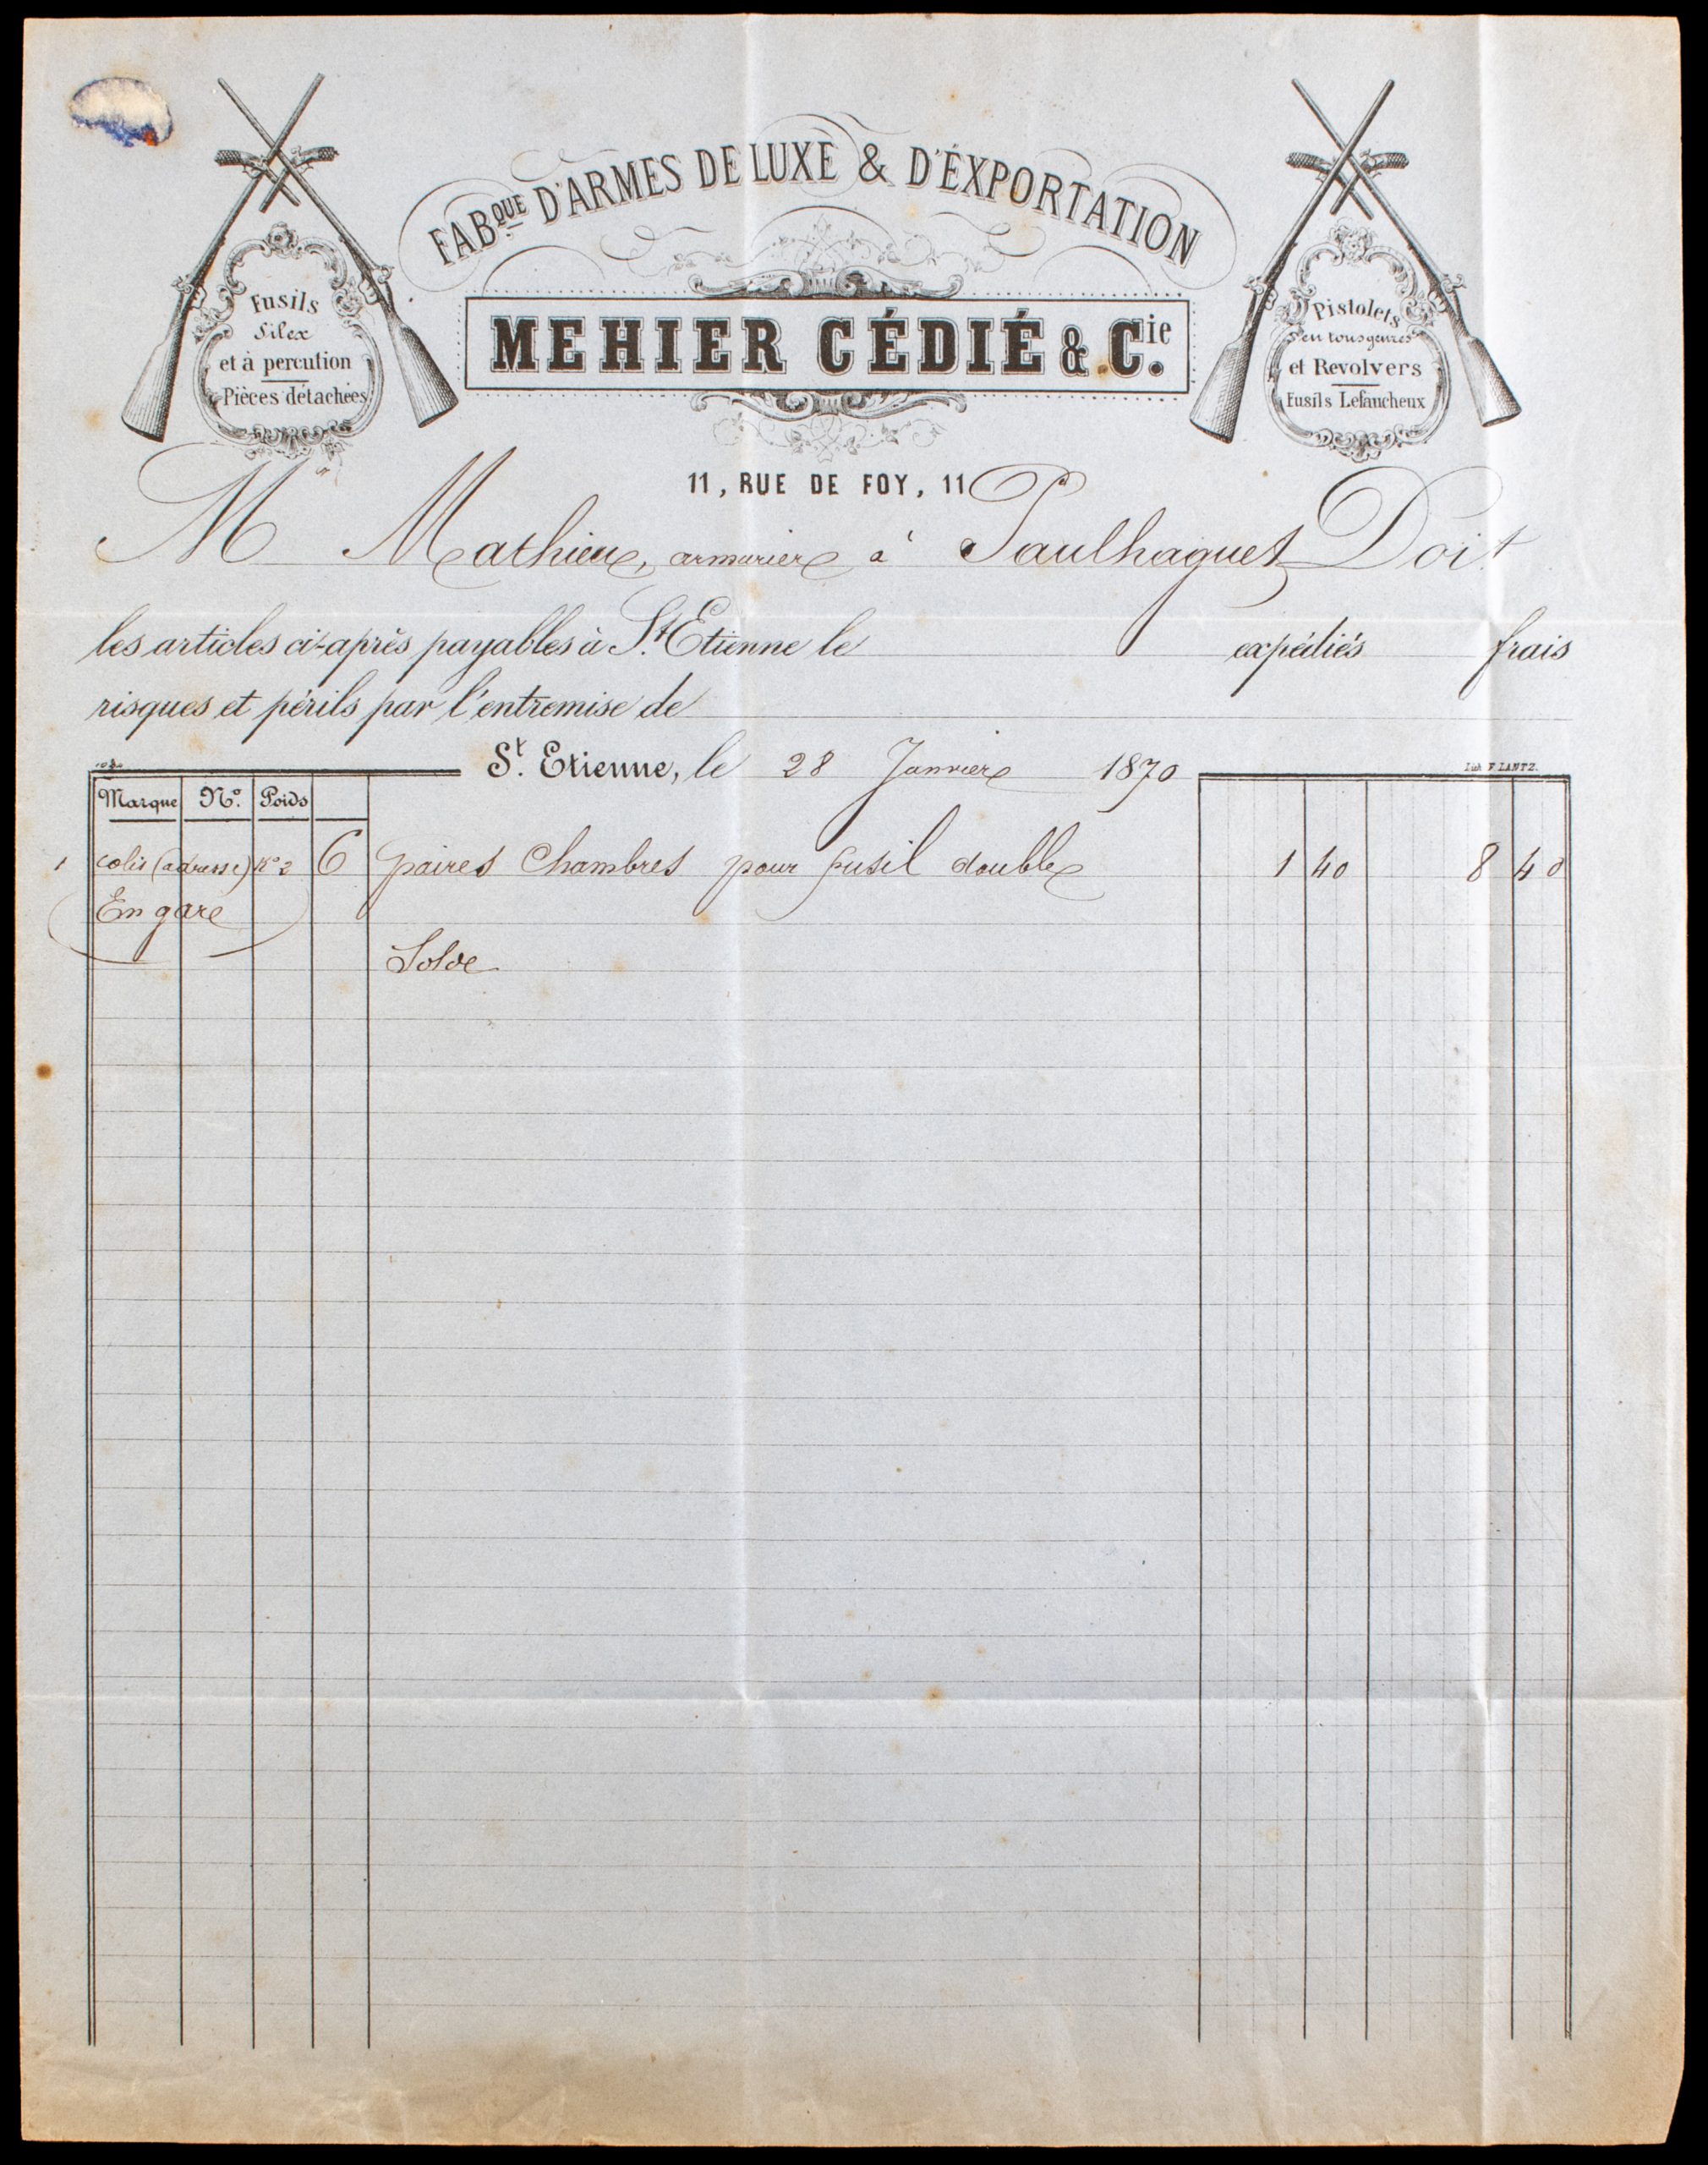 FABQUE D'ARMES DE LUXE & D'ÉXPORTATION
MEHIER CÉDIÉ & Cie.
Fusils
Silex
et à percution
Pièces détachées
Pistolets
en tous genres
et Revolvers
Fusils Lefaucheux
11, RUE DE FOY, 11
M Mathieu, armurier à Paulhaguet Doit
les articles ci-après payables à St. Etienne le expédiés frais
risques et périls par l'entremise de
St. Etienne, le 28 Janvier 1870
Lith F. LANTZ.
Marque No. Poids
1 colis (adresse) Ko 2 6 paires Chambres pour fusil double 1 40 8 40
En gare
Solde